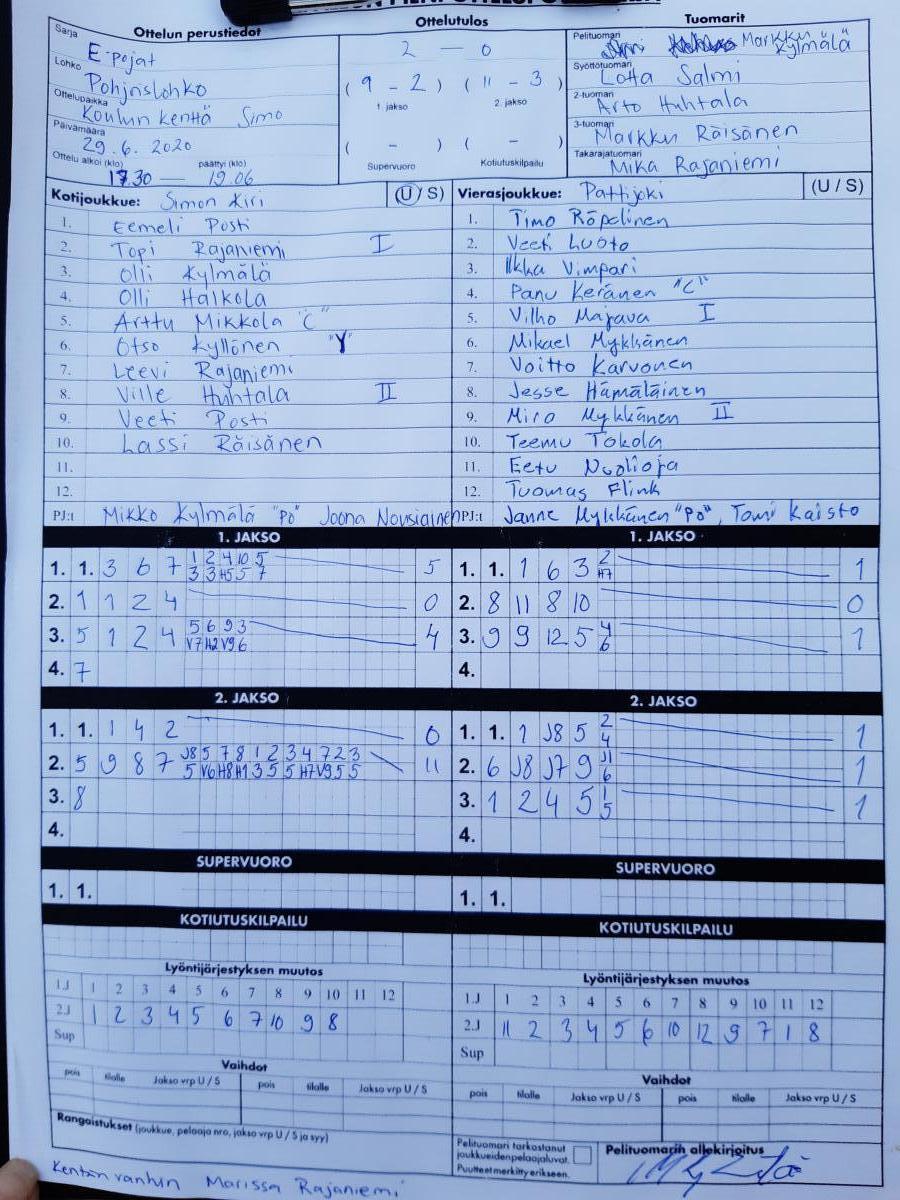 Ottelun perustiedot
Ottelutulos
Tuomarit
Sarja E-pojat
Lohko Pohjoislohko
Ottelupaikka Koulun kenttä Simo
Päivämäärä 29.6. 2020
Ottelu alkoi (klo) päättyi (klo)
17.30 — 19.06
2 — 0
( 9 - 2 ) ( 11 - 3 )
1. jakso 2. jakso
( - ) ( - )
Supervuoro Kotiutuskilpailu
Pelituomari Markku Kylmälä
Syöttötuomari Lotta Salmi
2-tuomari Arto Huhtala
3-tuomari Markku Räisänen
Takarajatuomari Mika Rajaniemi
Kotijoukkue: Simon Kiri (U / S)
1. Eemeli Posti
2. Topi Rajaniemi I
3. Olli Kylmälä
4. Olli Halkola
5. Arttu Mikkola "C"
6. Otso Kyllönen "Y"
7. Leevi Rajaniemi
8. Ville Huhtala II
9. Veeti Posti
10. Lassi Räisänen
11.
12.
PJ:t Mikko Kylmälä "PO" Joona Nousiainen
Vierasjoukkue: Pattijoki (U / S)
1. Timo Röpelinen
2. Veeti Luoto
3. Ilkka Vimpari
4. Panu Keränen "C"
5. Vilho Majava I
6. Mikael Mykkänen
7. Voitto Karvonen
8. Jesse Hämäläinen
9. Miro Mykkänen II
10. Teemu Tokola
11. Eetu Nuolioja
12. Tuomas Flink
PJ:t Janne Mykkänen "PO", Tomi Kaisto
1. JAKSO
1. 1. 3 6 7 1 2 4 10 5 5
3 3 H5 5 7
2. 1 1 2 4 0
3. 5 1 2 4 5 6 9 3 4
V7 H2 V9 6
4. 7
1. JAKSO
1. 1. 1 6 3 2 1
H7
2. 8 11 8 10 0
3. 9 9 12 5 4 1
6
4.
2. JAKSO
1. 1. 1 4 2 0
2. 5 9 8 7 J8 5 7 8 1 2 3 4 7 2 3 11
5 V6 H8 H1 3 5 5 H7 V9 5 5
3. 8
4.
2. JAKSO
1. 1. 1 J8 5 2 1
4
2. 6 J8 J7 9 J1 1
6
3. 1 2 4 5 1 1
5
4.
SUPERVUORO
1. 1.
SUPERVUORO
1. 1.
KOTIUTUSKILPAILU
KOTIUTUSKILPAILU
Lyöntijärjestyksen muutos
1.J 1 2 3 4 5 6 7 8 9 10 11 12
2.J 1 2 3 4 5 6 7 10 9 8
Sup
Lyöntijärjestyksen muutos
1.J 1 2 3 4 5 6 7 8 9 10 11 12
2.J 11 2 3 4 5 6 10 12 9 7 1 8
Sup
Vaihdot
pois tilalle Jakso vrp U / S pois tilalle Jakso vrp U / S
Vaihdot
pois tilalle Jakso vrp U / S pois tilalle Jakso vrp U / S
Rangaistukset (joukkue, pelaaja nro, jakso vrp U / S ja syy)
Pelituomari tarkastanut
joukkueidenpelaajaluvat.
Puutteet merkitty erikseen.
Pelituomarin allekirjoitus
Kentän vanhin Marissa Rajaniemi